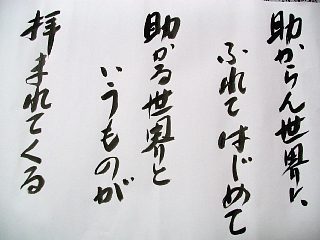 助からん世界に
ふれてはじめて
助かる世界と
いうものが
拝まれてくる